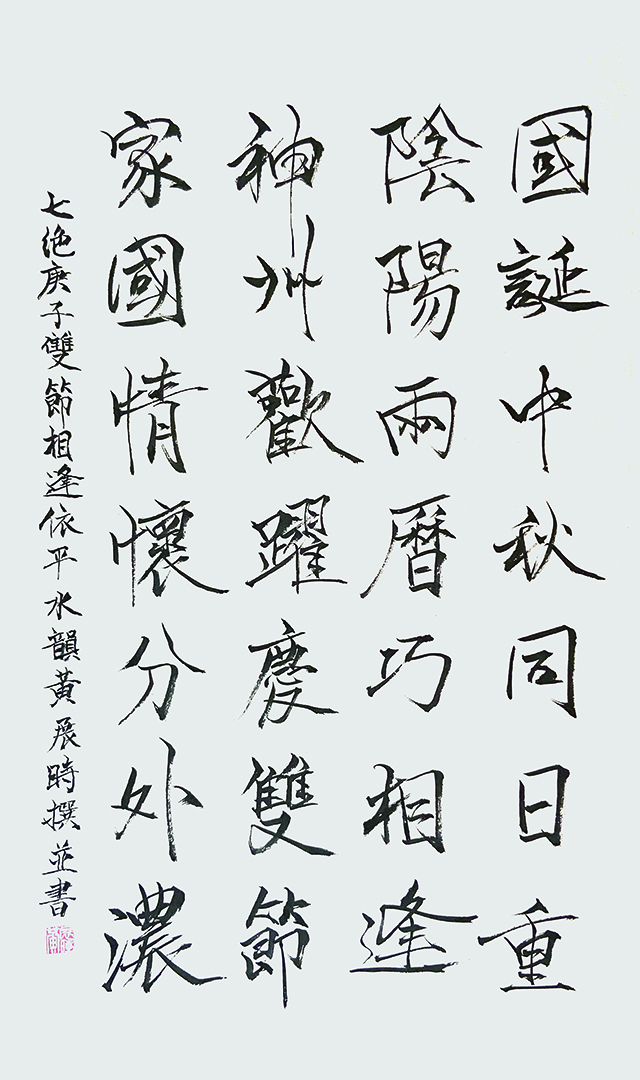 國誕中秋同日重
陰陽兩曆巧相逢
神州歡躍慶雙節
家國情懷分外濃
七绝庚子雙節相逢依平水韻黄展時撰並書